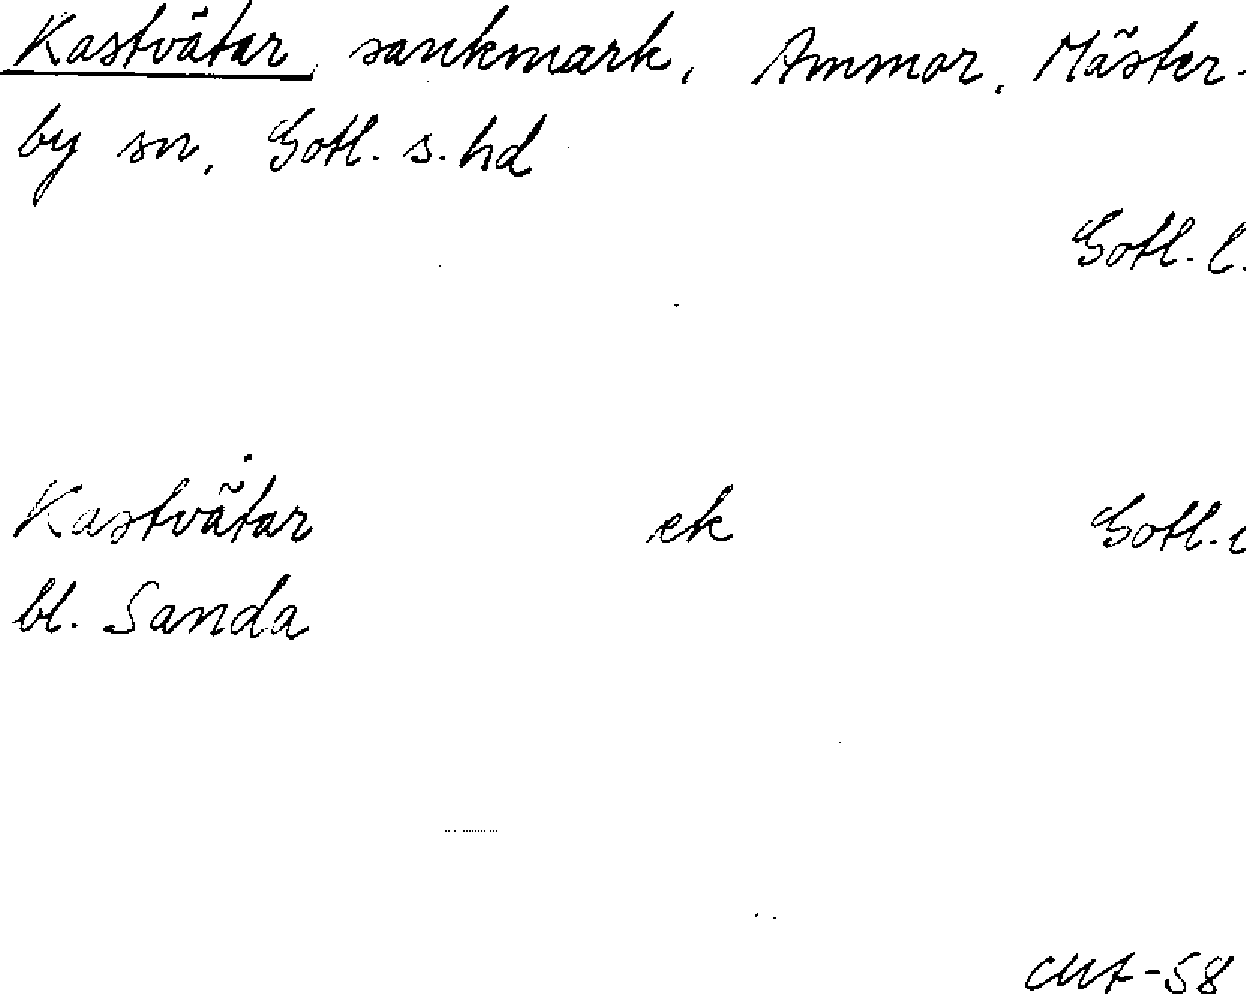 Kastvätar, sankmark, Ammor, Mäster-
by sn, Gotl. s. hd
Gotl. l.
Kastvätar ek Gotl.
bl. Sanda
-58